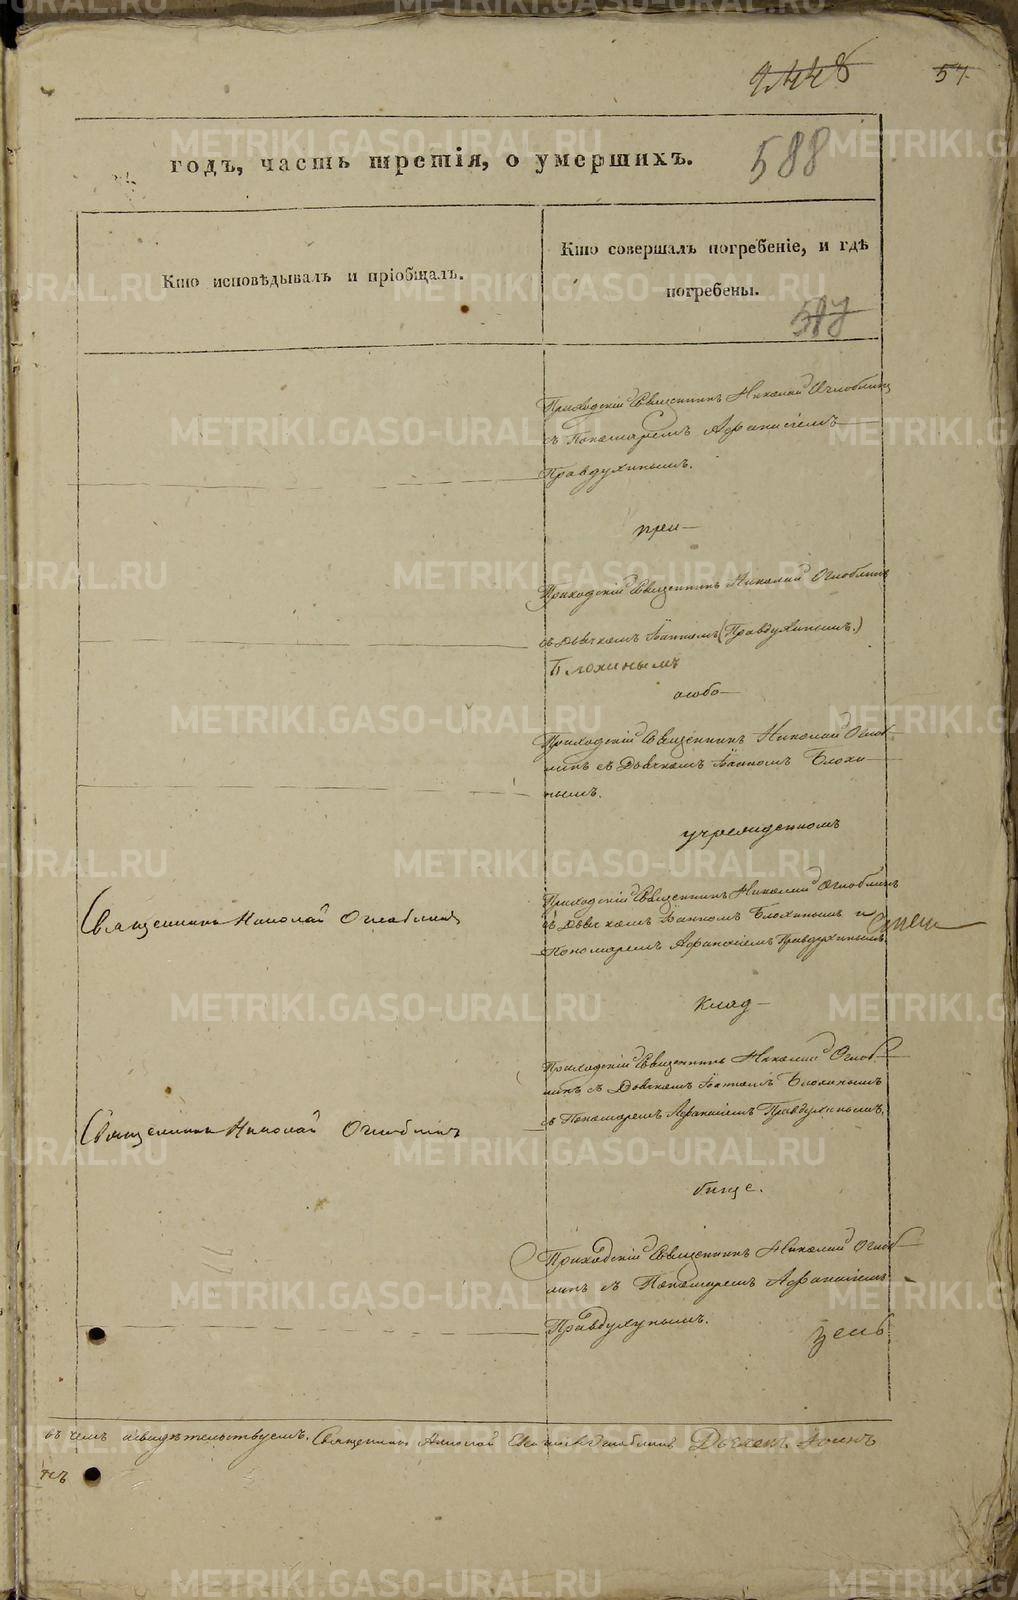 9448
57
годъ, часть третія, о умершихъ.
588
Кто исповѣдывалъ и пріобщалъ.
Кто совершалъ погребеніе, и гдѣ
погребены.
587
Приходскій Священникъ Николай Оглоблинъ
съ Пономаремъ Афанасіемъ
Правдухинымъ.
при-
Приходскій Священникъ Николай Оглоблинъ
съ Дьячкомъ Іоанномъ (Правдухинымъ.)
Блохинымъ
особо-
Приходскій Священникъ Николай Оглоб-
линъ съ Дьячкомъ Іоанномъ Блохи-
нымъ.
учрежденномъ
Священникъ Николай Оглоблинъ
Приходскій Священникъ Николай Оглоблинъ
съ Дьячкомъ Іоанномъ Блохинымъ и
Пономаремъ Афанасіемъ Правдухинымъ.
Клад-
Священникъ Николай Оглоблинъ
Приходскій Священникъ Николай Оглоб-
линъ съ Дьячкомъ Іоанномъ Блохинымъ
съ Пономаремъ Афанасіемъ Правдухинымъ.
бище.
Приходскій Священникъ Николай Оглоб-
линъ съ Пономаремъ Афанасіемъ
Правдухинымъ.
въ чемъ и свидѣтельствуемъ. Священникъ Николай Оглоблинъ Дьячекъ Іоанъ
METRIKI.GASO-URAL.RU